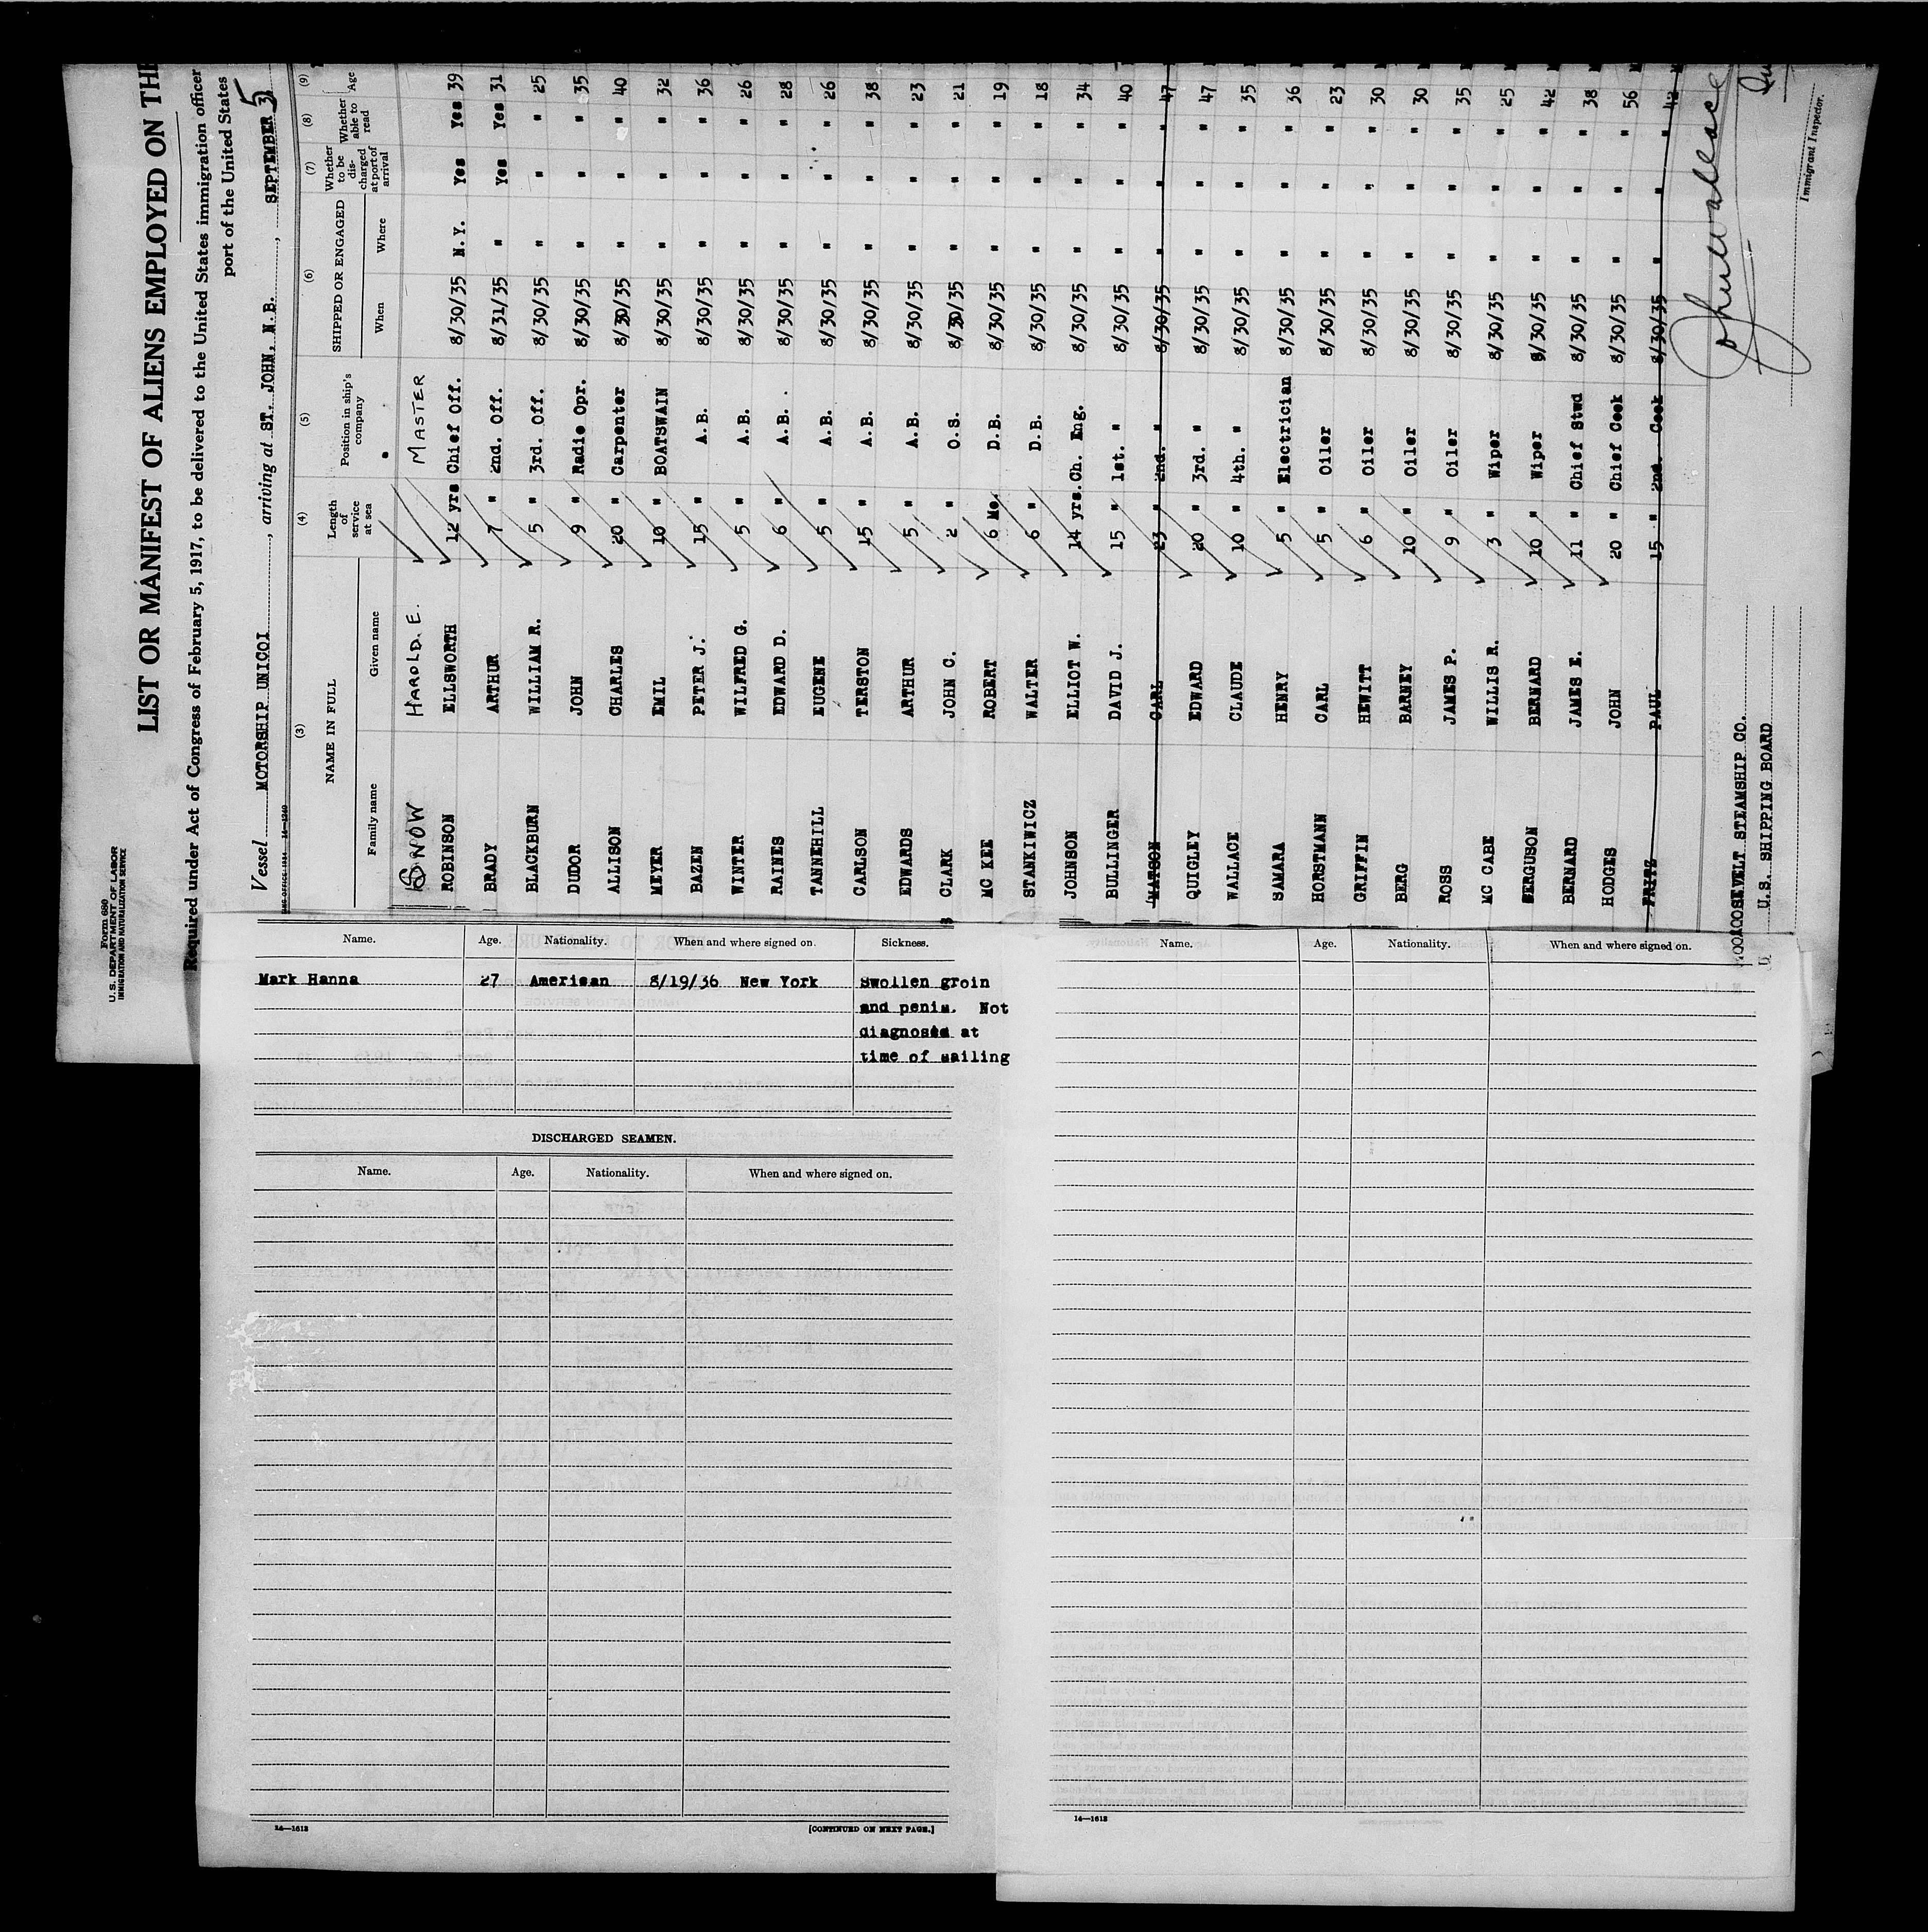 Form 680
U.S. DEPARTMENT OF LABOR
IMMIGRATION AND NATURALIZATION SERVICE
LIST OR MANIFEST OF ALIENS EMPLOYED ON THE
Required under Act of Congress of February 5, 1917, to be delivered to the United States immigration officer
port of the United States
Vessel MOTORSHIP UNICOI, arriving at ST. JOHN, N.B., SEPTEMBER 5
(3) (4) (5) (6) (7) (8) (9)
NAME IN FULL Length of service at sea Position in ship's company SHIPPED OR ENGAGED Whether to be discharged at port of arrival Whether able to read Age
Family name Given name When Where
SNOW HAROLD E. MASTER
ROBINSON ELLSWORTH 12 yrs Chief Off. 8/30/35 N.Y. Yes Yes 39
BRADY ARTHUR 7 " 2nd. Off. 8/31/35 " Yes Yes 31
BLACKBURN WILLIAM R. 5 " 3rd. Off. 8/30/35 " " " 25
DUDOR JOHN 9 " Radio Opr. 8/30/35 " " " 35
ALLISON CHARLES 20 " Carpenter 8/30/35 " " " 40
MEYER EMIL 10 " BOATSWAIN 8/30/35 " " " 32
BAZEN PETER J. 15 " A.B. 8/30/35 " " " 36
WINTER WILFRED G. 5 " A.B. 8/30/35 " " " 26
RAINES EDWARD D. 6 " A.B. 8/30/35 " " " 28
TANNEHILL EUGENE 5 " A.B. 8/30/35 " " " 26
CARLSON TERSTON 15 " A.B. 8/30/35 " " " 38
EDWARDS ARTHUR 5 " A.B. 8/30/35 " " " 23
CLARK JOHN C. 2 " O.S. 8/30/35 " " " 21
MC KEE ROBERT 6 Mo. D.B. 8/30/35 " " " 19
STANKIWICZ WALTER 6 " D.B. 8/30/35 " " " 18
JOHNSON ELLIOT W. 14 yrs. Ch. Eng. 8/30/35 " " " 34
BULLINGER DAVID J. 15 " 1st. " 8/30/35 " " " 40
MATSON CARL 23 " 2nd. " 8/30/35 " " " 47
QUIGLEY EDWARD 20 " 3rd. " 8/30/35 " " " 47
WALLACE CLAUDE 10 " 4th. " 8/30/35 " " " 35
SAMARA HENRY 5 " Electrician 8/30/35 " " " 36
HORSTMANN CARL 5 " Oiler 8/30/35 " " " 23
GRIFFIN HEWITT 6 " Oiler 8/30/35 " " " 30
BERG BARNEY 10 " Oiler 8/30/35 " " " 30
ROSS JAMES P. 9 " Oiler 8/30/35 " " " 35
MC CABE WILLIS R. 3 " Wiper 8/30/35 " " " 25
FERGUSON BERNARD 10 " Wiper 8/30/35 " " " 42
BERNARD JAMES E. 11 " Chief Stwd 8/30/35 " " " 38
HODGES JOHN 20 " Chief Cook 8/30/35 " " " 56
FRITZ PAUL 15 " 2nd. Cook 8/30/35 " " " 42
ROOSEVELT STEAMSHIP CO.
U.S. SHIPPING BOARD
Immigrant Inspector.
Name. Age. Nationality. When and where signed on. Sickness.
Mark Hanna 27 American 8/19/36 New York Swollen groin
and penis. Not
diagnosed at
time of sailing
DISCHARGED SEAMEN.
Name. Age. Nationality. When and where signed on.
14—1613
[CONTINUED ON NEXT PAGE.]
Name. Age. Nationality. When and where signed on.
14—1613